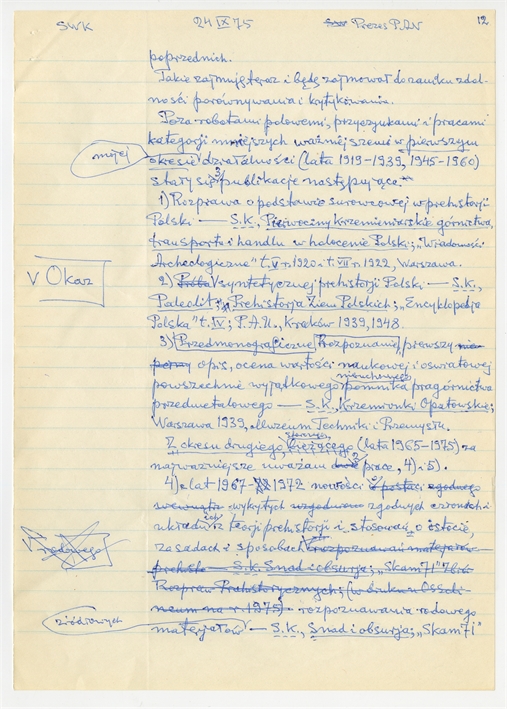 SWK 24 IX 75 Prezes P.A.N 12
poprzednich.
Takie zajmują teraz i będę zajmował do zaniku zdol-
ności porównywania i krytykowania.
Poza robotami polowemi, przyczynkami i pracami
kategorji mniejszych ważniejszemi w pierwszym
mojej
okresie działalności (lata 1919-1939, 1945-1960)
stały się 3 publikacje następujące.
1) Rozprawa o podstawie surowcowej w prehistorji
Polski — S.K., Pierwociny krzemieniarskie górnictwa,
transportu i handlu w holocenie Polski; „Wiadomości
Archeologiczne" t. V r. 1920 i t. VII r. 1922, Warszawa.
V Okaz
2) Próba V syntetycznej prehistorji Polski — S.K.,
Paleolit; Prehistorja Ziem Polskich; „Encyklopedja
Polska" t. IV; P.A.U., Kraków 1939, 1948.
3) Przedmonograficzne Rozpoznanie, pierwszy
opis, ocena wartości naukowej i oświatowej
nieruchomego
powszechnie wyjątkowego pomnika pragórnictwa
przedmetalowego — S.K., Krzemionki Opatowskie;
Warszawa 1939, Muzeum Techniki i Przemysłu.
Z okresu drugiego, bieżącego (lata 1965-1975) za
najważniejsze uważam dwie 2 prace, 4) i 5).
4) z lat 1967-1972 nowości w postaci zgodnego
wewnątrz wykytych zgodnych członach i
układzie teorji prehistorji i stosowań o istocie,
V rodowego
zasadach i sposobach V rozpoznawań materjałów
prehisto — S.K. Snad i obsurja; „Skam 71" Zbiór
Rozpraw Prahistorycznych; (w druku Ossoli-
neum na r. 1975) - rozpoznawania rodowego
źródłowych
materjałów — S.K., Snad i obsurja; „Skam 71"